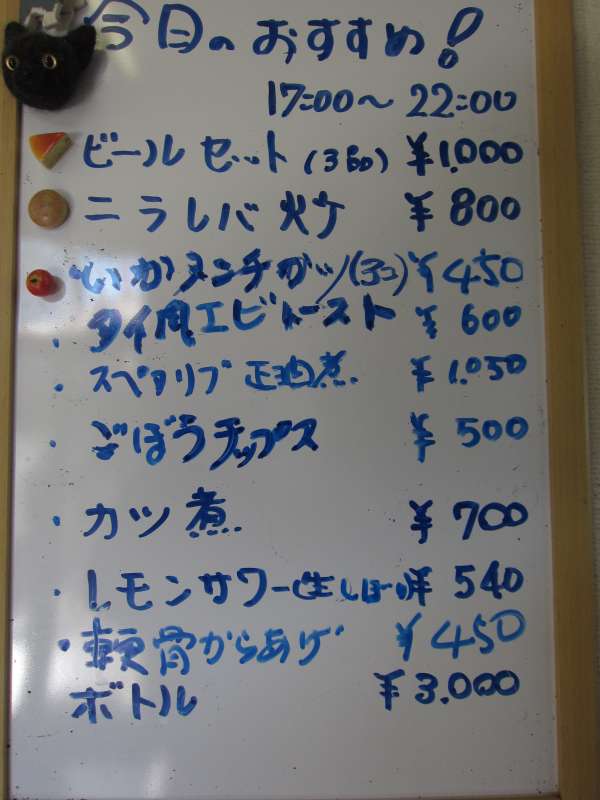 今日のおすすめ!
17:00〜22:00
ビールセット(3品) ¥1.000
ニラレバ炒ケ ¥800
いかメンチカツ(3コ) ¥450
タイ風エビトースト ¥600
スペアリブ正油煮 ¥1.050
ごぼうチップス ¥500
カツ煮 ¥700
レモンサワー(生しぼり) ¥540
軟骨からあげ ¥450
ボトル ¥3.000